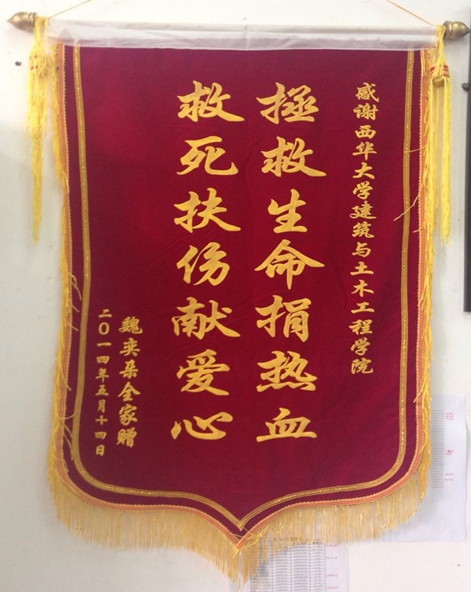 感谢西华大学建筑与土木工程学院
拯救生命捐热血
救死扶伤献爱心
魏奕朵全家赠
二〇一四年五月十四日